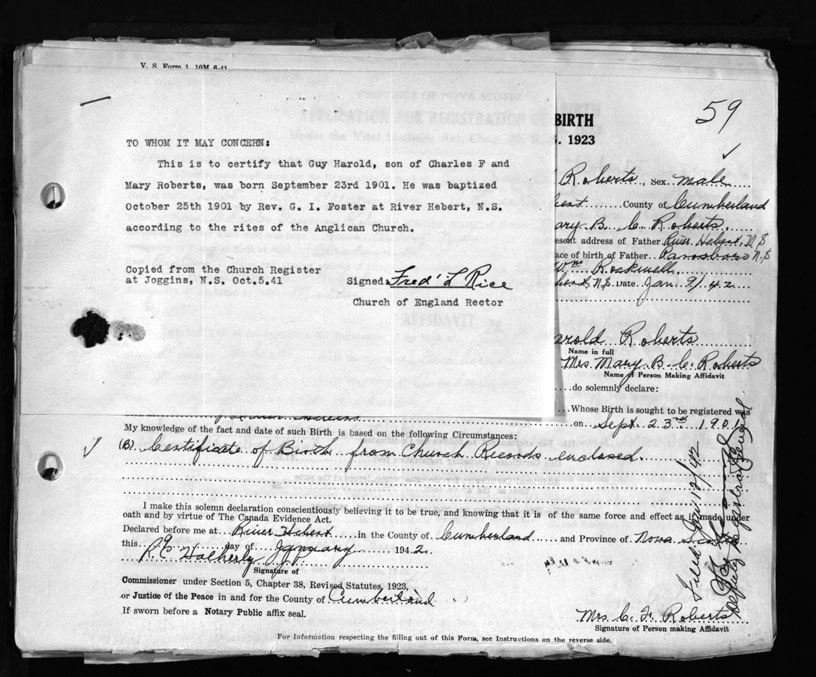 V. S. Form 1. 10M 6-41
59
TO WHOM IT MAY CONCERN:
This is to certify that Guy Harold, son of Charles F and
Mary Roberts, was born September 23rd 1901. He was baptized
October 25th 1901 by Rev. G. I. Foster at River Hebert, N.S.
according to the rites of the Anglican Church.
Copied from the Church Register
at Joggins, N.S. Oct.5.41
Signed: Fred' L Rice
Church of England Rector
BIRTH
1923
Roberts, Sex male
County of Cumberland
ary B. C. Roberts
esent address of Father River Hebert, N.S
ace of birth of Father Parrsboro N.S
N.S. Date Jan. 9/42
arold Roberts
Name in full
Mrs. Mary B. C. Roberts
Name of Person Making Affidavit
do solemnly declare:
Whose Birth is sought to be registered was
on Sept. 23rd 1901
AFFIDAVIT
My knowledge of the fact and date of such Birth is based on the following Circumstances:
(B) Certificate of Birth from Church Records enclosed.
I make this solemn declaration conscientiously believing it to be true, and knowing that it is of the same force and effect as if made under
oath and by virtue of The Canada Evidence Act.
Declared before me at River Hebert in the County of Cumberland and Province of Nova Scotia
this 9 day of January 1942.
Signature of
Commissioner under Section 5, Chapter 38, Revised Statutes, 1923,
or Justice of the Peace in and for the County of Cumberland
If sworn before a Notary Public affix seal.
Mrs. C. F. Roberts
Signature of Person making Affidavit
For Information respecting the filling out of this Form, see Instructions on the reverse side.
Filed Jan 12/42
Deputy Registrar General